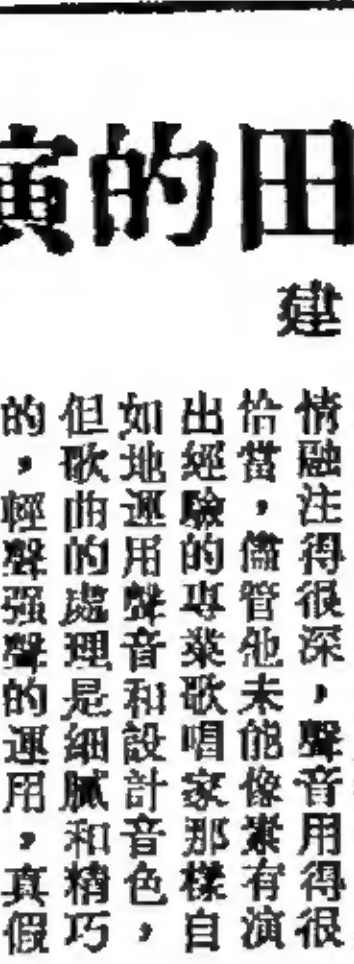 演的田
建
情融注得很深，聲音用得很
恰當，儘管他未能像素有演
出經驗的專業歌唱家那樣自
如地運用聲音和設計音色，
但歌曲的處理是細膩和精巧
的，輕聲强聲的運用，真假